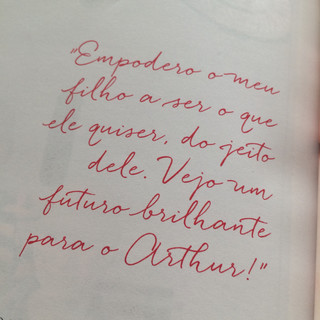 "Empodero o meu
filho a ser o que
ele quiser, do jeito
dele. Vejo um
futuro brilhante
para o Arthur!"